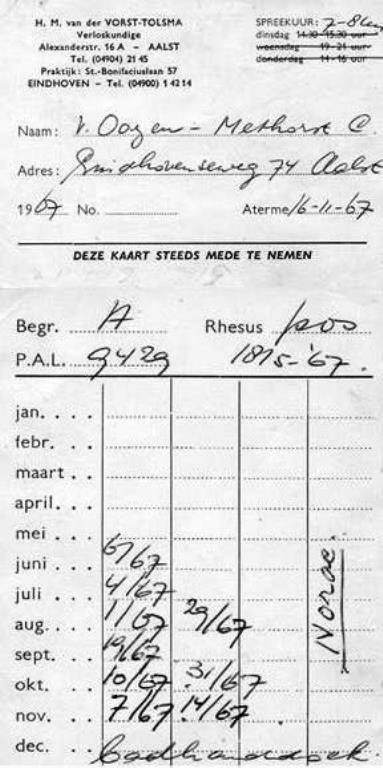 H. M. van der VORST-TOLSMA
Verloskundige
Alexanderstr. 16 A - AALST
Tel. (04904) 21 45
Praktijk: St.-Bonifaciuslaan 57
EINDHOVEN - Tel. (04900) 1 42 14
SPREEKUUR: 7-8
dinsdag 14.30-15.30 uur
woensdag 19-21 uur
donderdag 14-16 uur
Naam: v. Ooyen - Methorst C.
Adres: Eindhovenseweg 74 Aalst
1967 No. Aterme 16-11-67
DEZE KAART STEEDS MEDE TE NEMEN
Begr. A Rhesus pos
P.A.L. 9429 1815-'67.
jan.
febr.
maart
april.
mei
juni 6/67
juli 4/67
aug. 1/67 29/67
sept. 19/67
okt. 10/67 31/67
nov. 7/67 14/67
dec. badhanddoek
Norac.